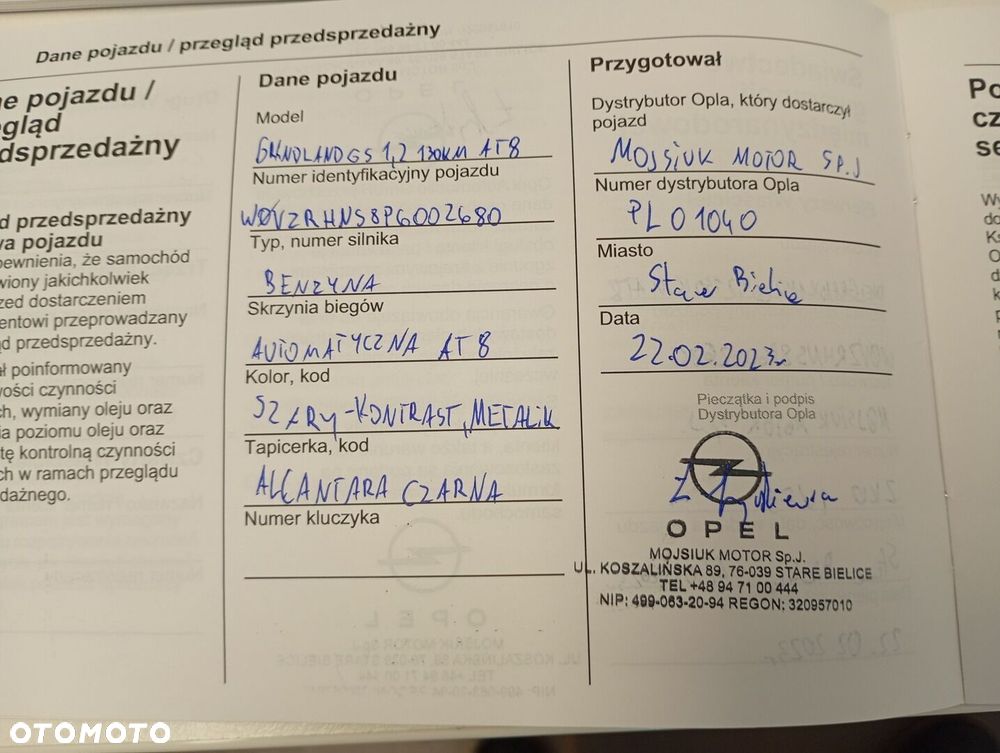 Dane pojazdu / przegląd przedsprzedażny
ne pojazdu /
egląd
dsprzedażny
d przedsprzedażny
wa pojazdu
pewnienia, że samochód
wiony jakichkolwiek
zed dostarczeniem
entowi przeprowadzany
ąd przedsprzedażny.
ał poinformowany
wości czynności
ch, wymiany oleju oraz
ia poziomu oleju oraz
tę kontrolną czynności
ch w ramach przeglądu
dażnego.
Dane pojazdu
Model
GRANDLAND GS 1,2 130KM AT8
Numer identyfikacyjny pojazdu
W0VZRHNS8P6002680
Typ, numer silnika
BENZYNA
Skrzynia biegów
AUTOMATYCZNA AT8
Kolor, kod
SZARY-KONTRAST, METALIK
Tapicerka, kod
ALCANTARA CZARNA
Numer kluczyka
Przygotował
Dystrybutor Opla, który dostarczył
pojazd
MOJSIUK MOTOR SP.J
Numer dystrybutora Opla
PL01040
Miasto
Stare Bielice
Data
22.02.2023r
Pieczątka i podpis
Dystrybutora Opla
OPEL
MOJSIUK MOTOR Sp.J.
UL. KOSZALIŃSKA 89, 76-039 STARE BIELICE
TEL +48 94 71 00 444
NIP: 499-063-20-94 REGON: 320957010
Po
cz
se
Wy
do
Ks
O
d
k
p
OTOMOTO